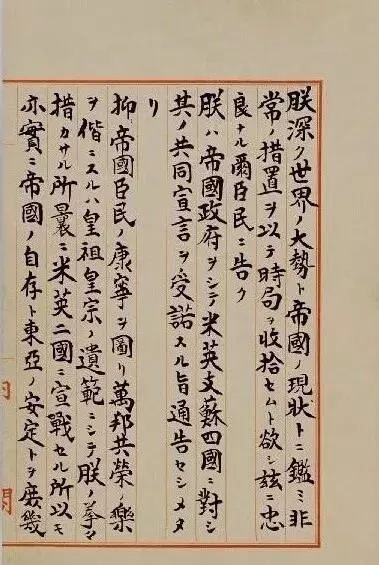 朕深ク世界ノ大勢ト帝國ノ現狀トニ鑑ミ非
常ノ措置ヲ以テ時局ヲ收拾セムト欲シ玆ニ忠
良ナル爾臣民ニ告ク
朕ハ帝國政府ヲシテ米英支蘇四國ニ對シ
其ノ共同宣言ヲ受諾スル旨通告セシメタ
リ
抑〻帝國臣民ノ康寧ヲ圖リ萬邦共榮ノ樂
ヲ偕ニスルハ皇祖皇宗ノ遺範ニシテ朕ノ拳〻
措カサル所曩ニ米英二國ニ宣戰セル所以モ
亦實ニ帝國ノ自存ト東亞ノ安定トヲ庶幾
閣